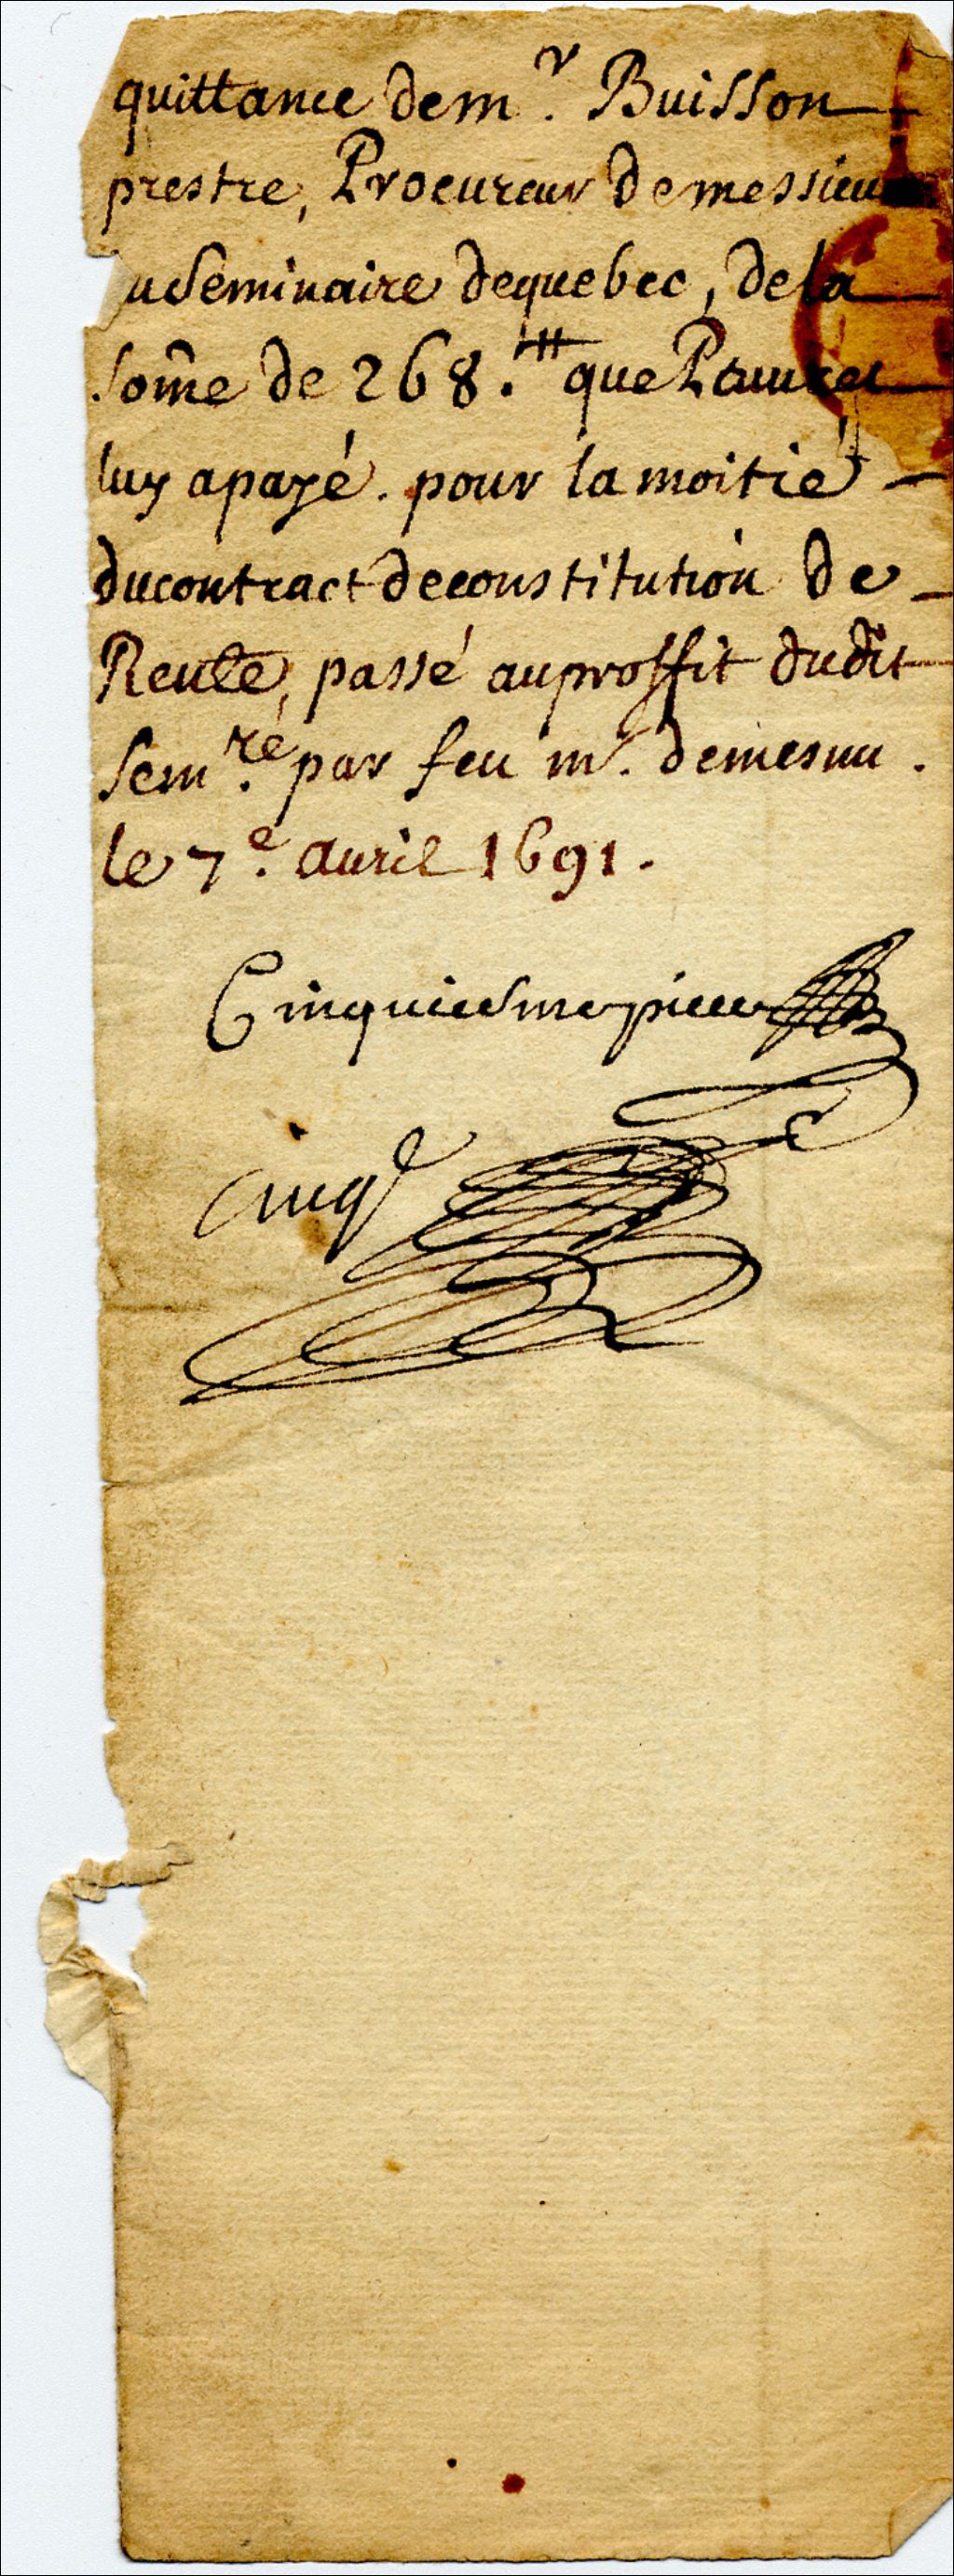 quittance de mr. Buisson
prestre, Procureur de messieu
u Seminaire de quebec, de la
some de 268.tt que
luy a payé. pour la moitié
du contract de constitution de
Rente, passé au proffit dudit
Semre. par feu mr. demesnu.
le 7e. auril 1691.
Cinquiesme piece
Cinqe